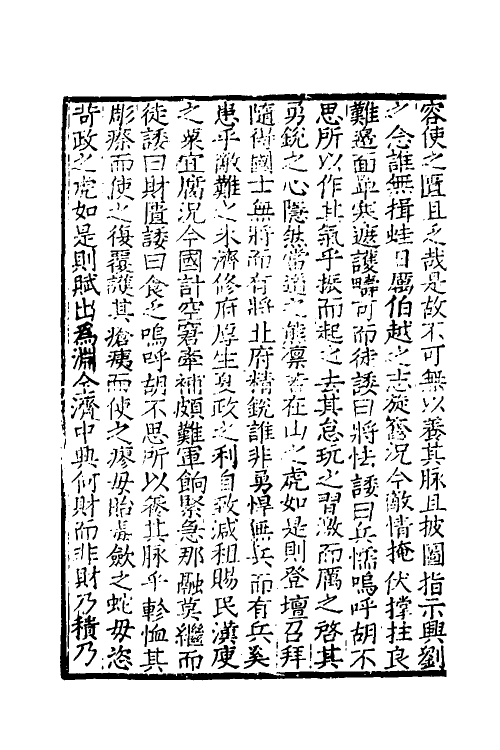 容使之匱且乏哉是故不可無以養其脉且披圖指示興劉
之念誰無揖蛙日厲伯越之志旋磨况今敵情掩伏撑拄良
難邊面單寒遮護疇可而徒諉曰將怯諉曰兵懦嗚呼胡不
思所以作其氣乎振而起之去其怠玩之習激而厲之啓其
勇銳之心隱然當道之熊凛若在山之虎如是則登壇召拜
隨得國士無將而有將北府精銳誰非勇悍無兵而有兵奚
患乎敵難之未濟修府厚生夏政之利自致减租賜民漢庾
之粟宜腐况今國計空窘牽補頗難軍餉緊急那融莫繼而
徒諉曰財匱諉曰食乏嗚呼胡不思所以養其脉乎軫恤其
彫瘵而使之復覆護其瘡痍而使之瘳毋貽毒歛之蛇毋恣
苛政之虎如是則賦出爲淵今濟中興何財而非財乃積乃